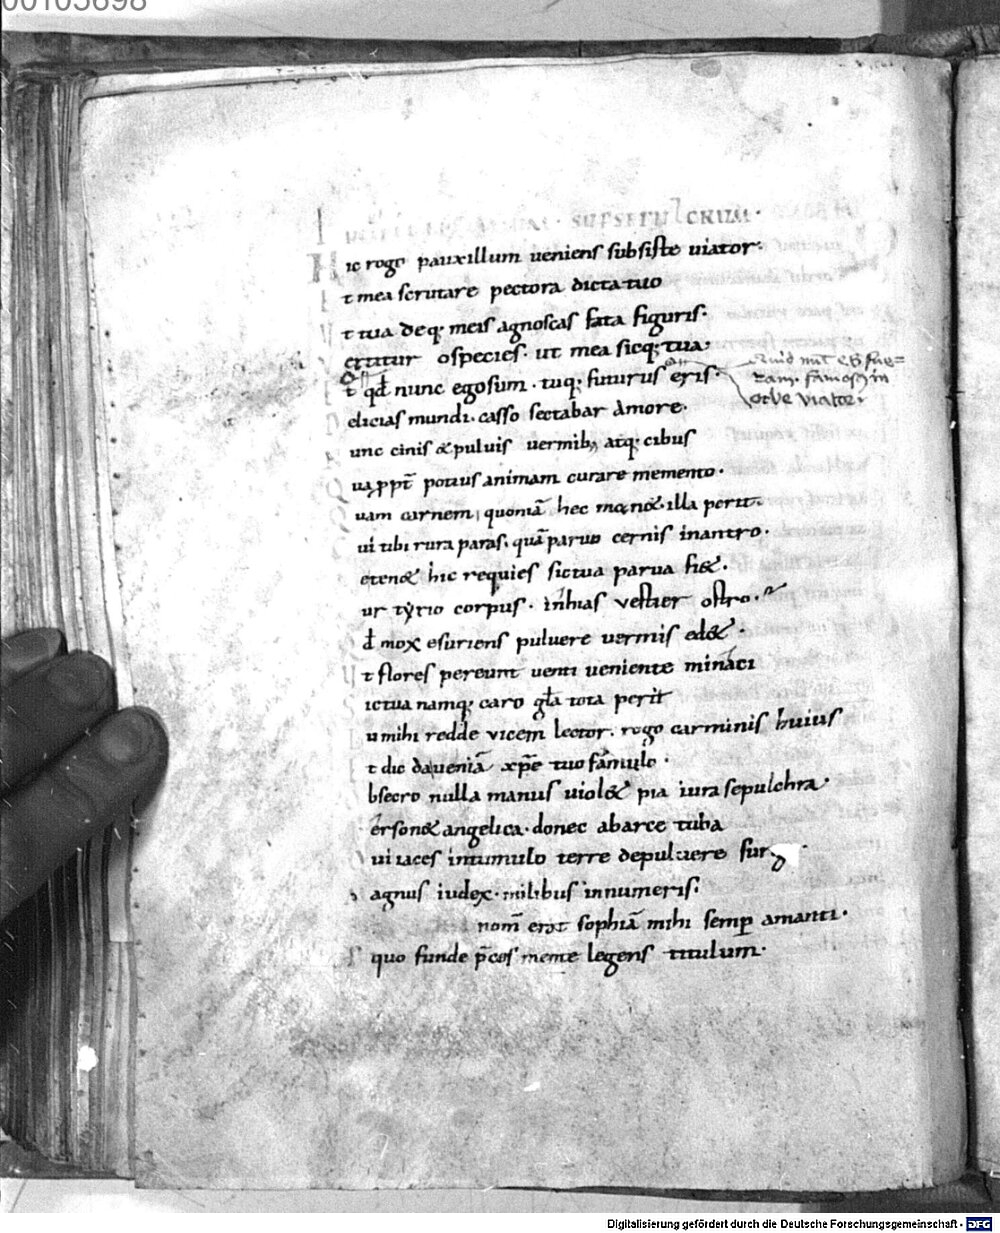 00105698
SUPSEPULCRUM·
Hic rogo pauxillum ueniens subsiste uiator·
t mea scrutare pectora dicta tuo
t tua deq; meis agnoscas fata figuris·
ertitur ospecies· ut mea sicq; tua·
t qđ nunc egosum· tuq; futurus eris·
Quid mͭ
famosꝫ in
orbe viator·
elicias mundi· casso sectabar amore·
unc cinis &puluis uermib; atq; cibus
Qua ꝓpt̄ potius animam curare memento·
uam carnem, quoniā hec man&· illa perit·
ui tibi rura paras, quā paruo cernis inantro·
eten& hic requies sictua parua fi&·
ur tyrio corpus· inhias vestier ostro·
đ mox esuriens puluere uermis ed&·
Ut flores pereunt uenti ueniente minaci
Sictua namq; caro gła tota perit
umihi redde vicem lector· rogo carminis huius
t dic daueniā xp̄e tuo famulo·
bsecro nulla manus uiol& pia iura sepulchra·
erson& angelica· donec abarce tuba
ui iaces intumulo terre depuluere surg
agnus iudex· milibus innumeris·
nom̄ erat sophiā mihi semp amanti·
quo funde p̄ces mente legens titulum·
Digitalisierung gefördert durch die Deutsche Forschungsgemeinschaft - DFG